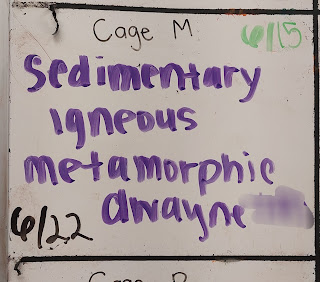 Cage M
6/15
Sedimentary
Igneous
metamorphic
dwayne
6/22